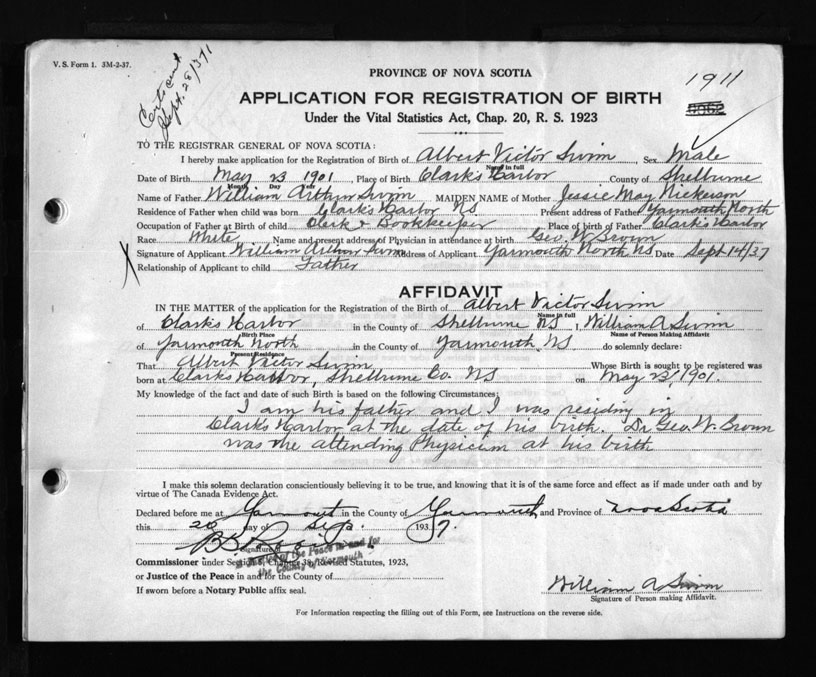 V. S. Form 1. 3M-2-37.
Sept. 28/37
1911
PROVINCE OF NOVA SCOTIA
APPLICATION FOR REGISTRATION OF BIRTH
Under the Vital Statistics Act, Chap. 20, R. S. 1923
TO THE REGISTRAR GENERAL OF NOVA SCOTIA:
I hereby make application for the Registration of Birth of Albert Victor Swim Sex Male
Name in full
Date of Birth May 23 1901 Place of Birth Clarks Harbor County of Shelburne
Month Day Year
Name of Father William Arthur Swim MAIDEN NAME of Mother Jessie May Nickerson
Residence of Father when child was born Clark's Harbor N.S. Present address of Father Yarmouth North
Occupation of Father at Birth of child Clerk & Bookkeeper Place of birth of Father Clark's Harbor
Race White Name and present address of Physician in attendance at birth Geo. W. Brown
Signature of Applicant William Arthur Swim Address of Applicant Yarmouth North NS Date Sept 14/37
Relationship of Applicant to child Father
AFFIDAVIT
IN THE MATTER of the application for the Registration of the Birth of Albert Victor Swim
Name in full
of Clarks Harbor in the County of Shelburne NS, William A Swim
Birth Place Name of Person Making Affidavit
of Yarmouth North in the County of Yarmouth, NS do solemnly declare:
Present Residence
That Albert Victor Swim Whose Birth is sought to be registered was
born at Clarks Harbor, Shelburne Co. NS on May 23/1901.
My knowledge of the fact and date of such Birth is based on the following Circumstances:
I am his father and I was residing in
Clark's Harbor at the date of his birth. Dr Geo. W. Brown
was the attending Physician at his birth
I make this solemn declaration conscientiously believing it to be true, and knowing that it is of the same force and effect as if made under oath and by
virtue of The Canada Evidence Act.
Declared before me at Yarmouth in the County of Yarmouth and Province of Nova Scotia
this 20 day of Sept. 1937.
Signature of
Justice of the Peace in and for
the County of Yarmouth
Commissioner under Section Chapter 38, Revised Statutes, 1923,
or Justice of the Peace in and for the County of
If sworn before a Notary Public affix seal.
William A Swim
Signature of Person making Affidavit.
For Information respecting the filling out of this Form, see Instructions on the reverse side.